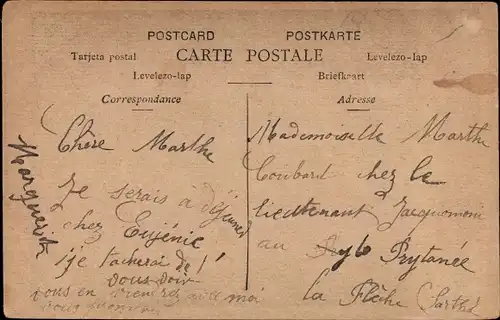 POSTCARD POSTKARTE
Tarjeta postal CARTE POSTALE Levelezo-lap
Levelezo-lap Briefkaart
Correspondance
Chère Marthe
Je serais a déjeuner
chez Eujénie
je tacherai de
vous voir
vous en moi
Marguerite
Adresse
Mademoiselle Marthe
Coubard chez le
lieutenant Jacquemoni
au Prytanée
la Flèche (Sarthe)